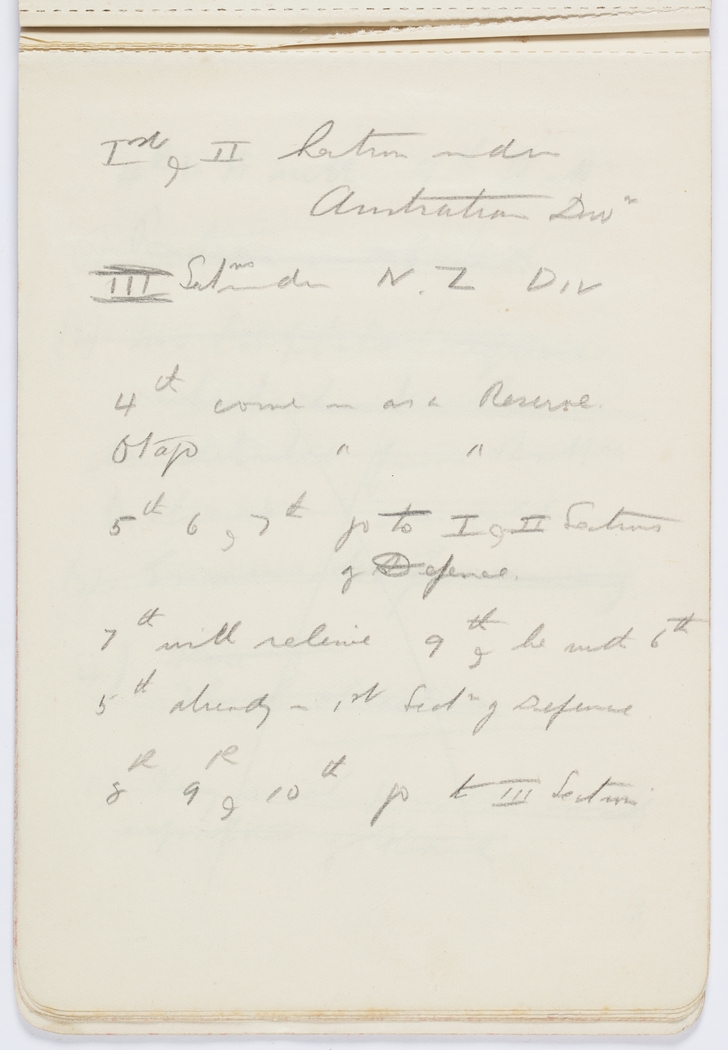 Ist & II Section under
Australian Divn
III Sectn under N.Z Div
4th come in as a Reserve.
Otago " "
5th 6 & 7th go to I & II Sections
of Defence.
7th will relieve 9th & be with 6th
5th already in 1st Sectn of Defence
8th 9th & 10th go to III Section